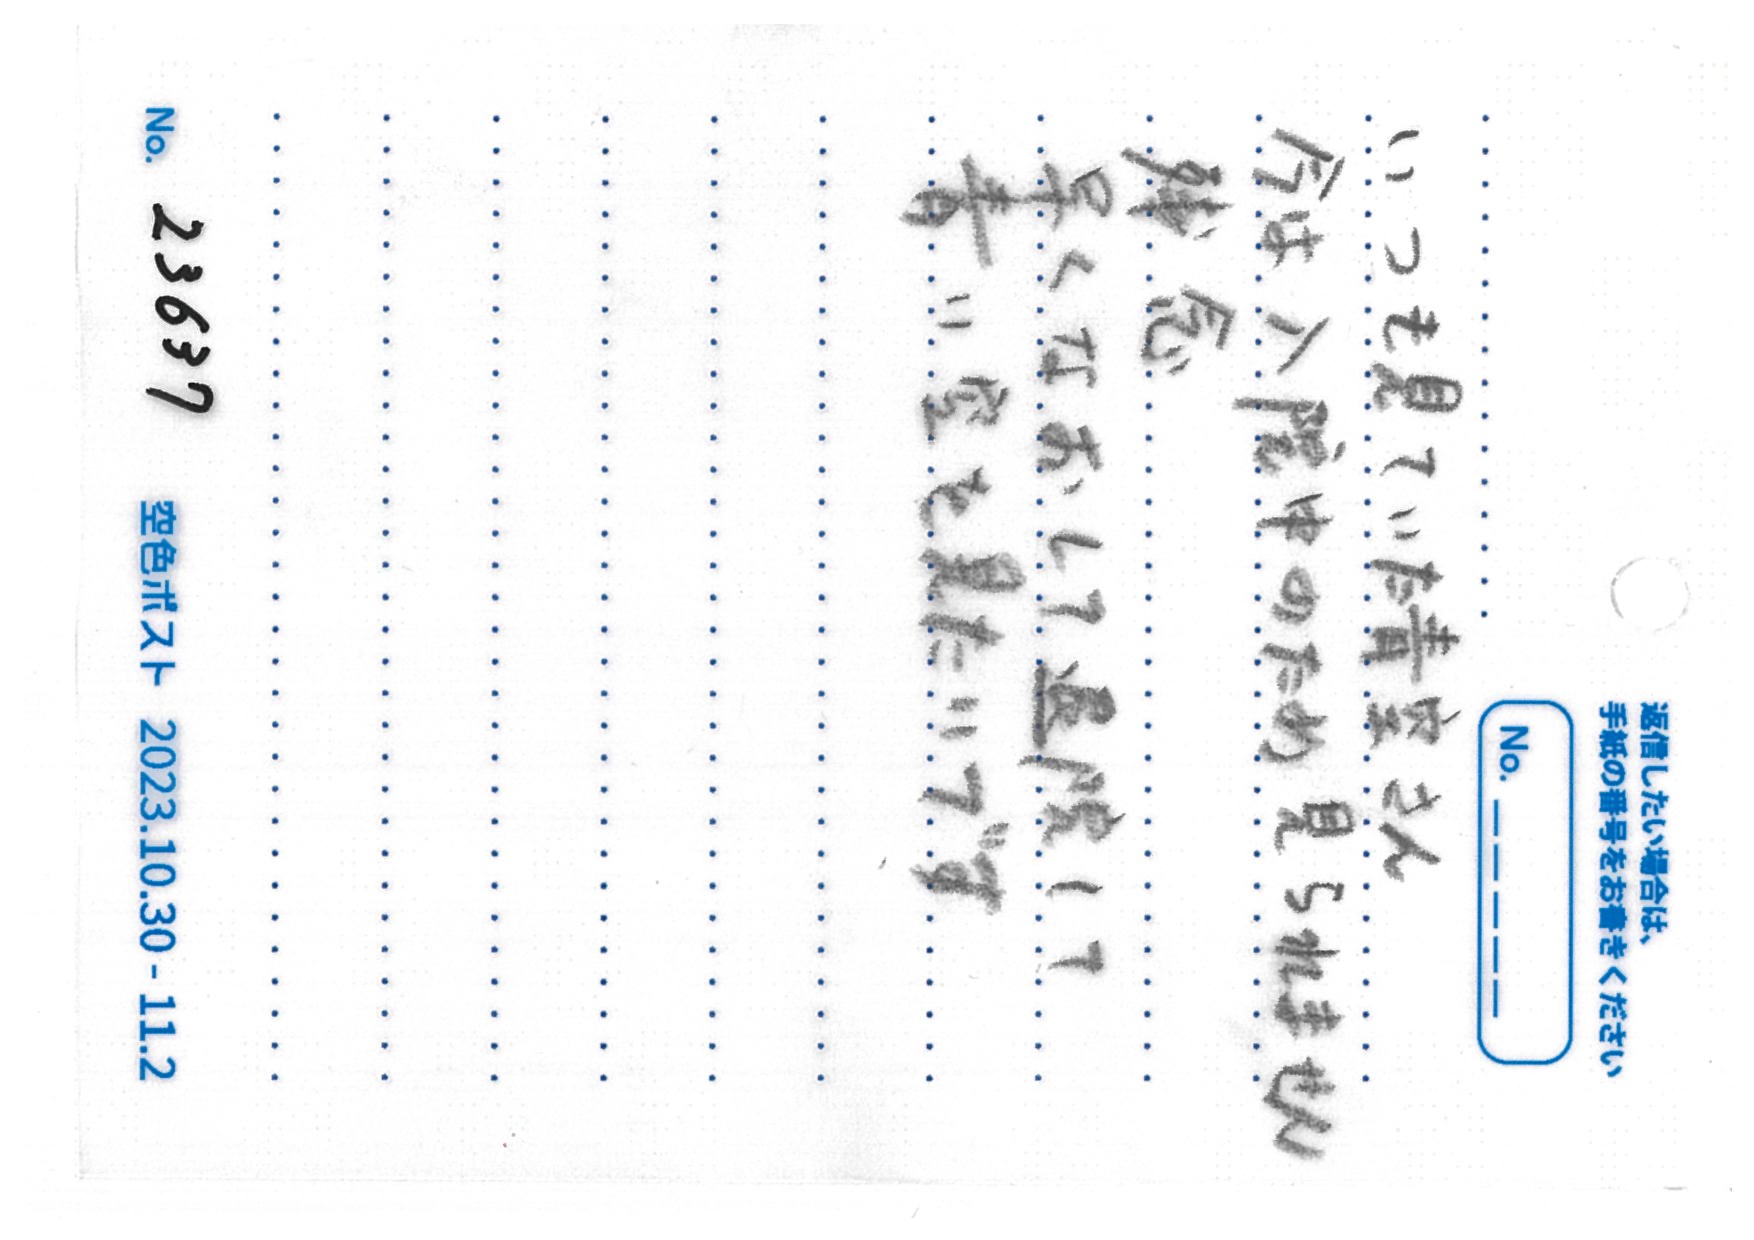 返信したい場合は、
手紙の番号をお書きください
No. _ _ _ _ _
いつも見ていた青空さん
今は入院中のため見られません
残念
早くなおして退院して
青い空を見たいです
No. 23637
空色ポスト 2023.10.30 - 11.2